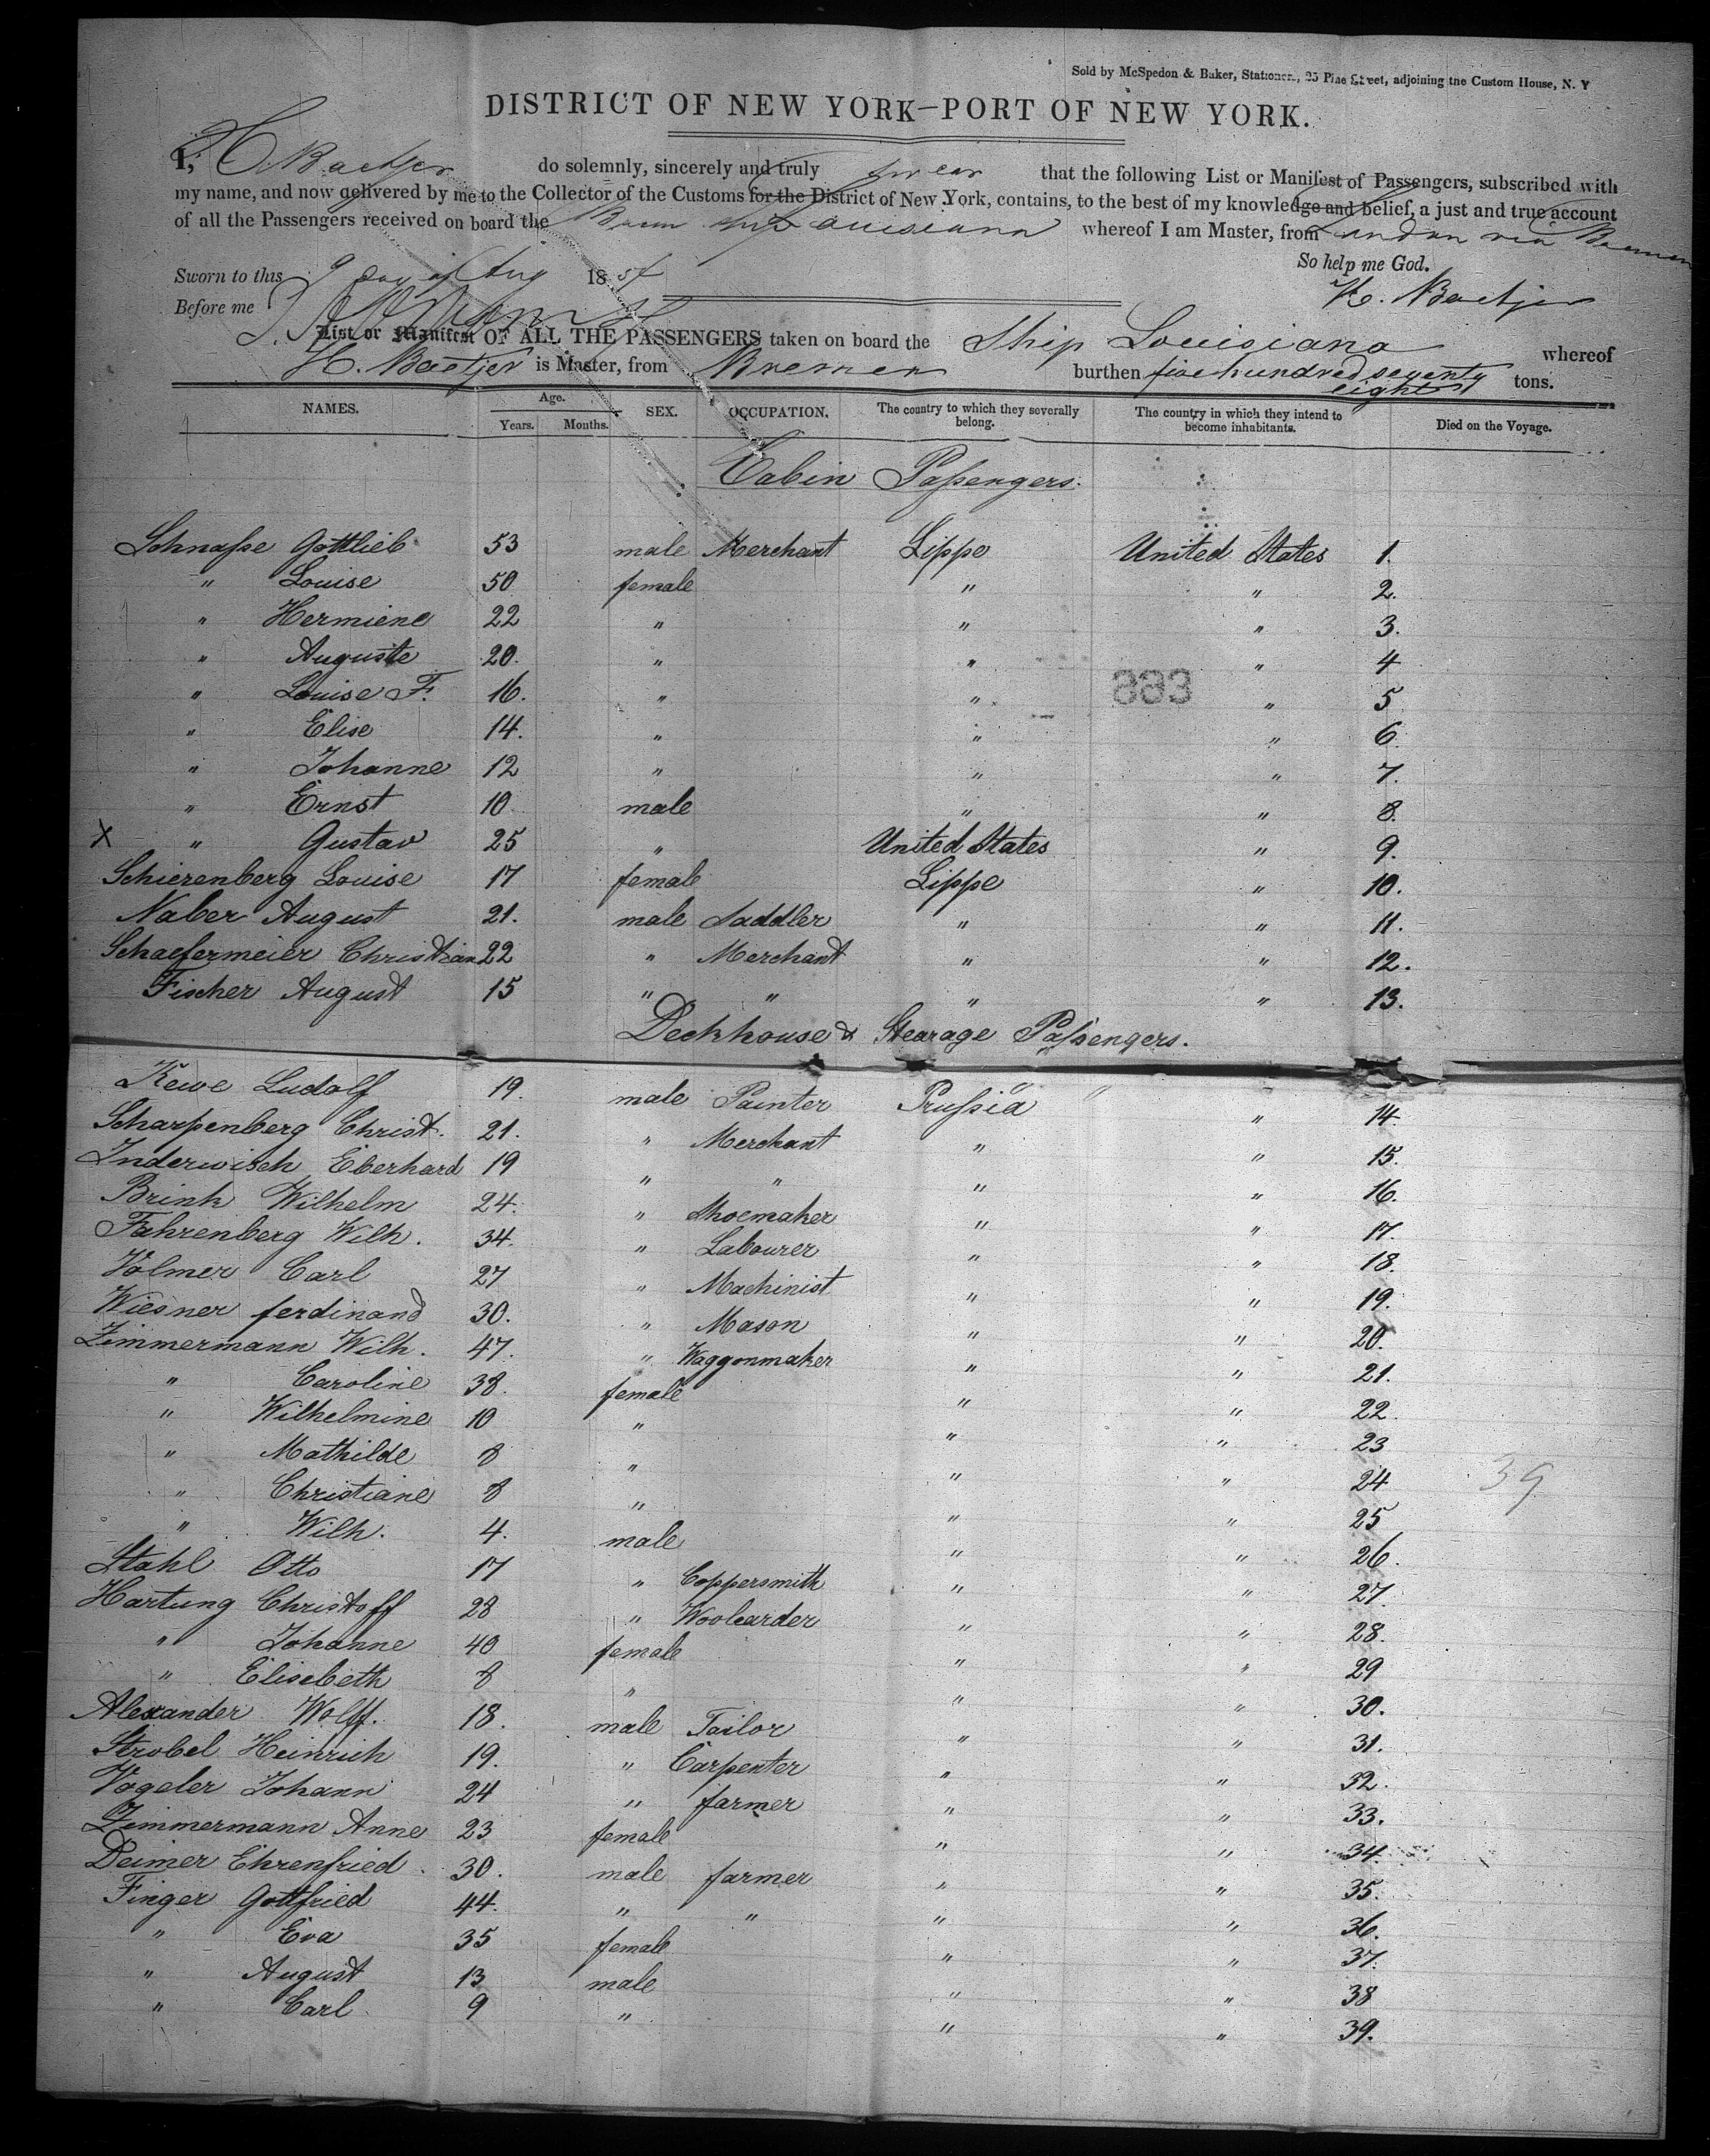 Sold by McSpedon & Baker, Stationers, 25 Pine Street, adjoining the Custom House, N. Y
DISTRICT OF NEW YORK—PORT OF NEW YORK.
I, H. Baetjer do solemnly, sincerely and truly swear that the following List or Manifest of Passengers, subscribed with
my name, and now delivered by me to the Collector of the Customs for the District of New York, contains, to the best of my knowledge and belief, a just and true account
of all the Passengers received on board the Brem. ship Louisiana whereof I am Master, from London via Bremen
So help me God.
Sworn to this 9 day of Aug 185
H. Baetjer
Before me
List or Manifest OF ALL THE PASSENGERS taken on board the Ship Louisiana whereof
H. Baetjer is Master, from Bremen burthen five hundred seventy eight tons.
NAMES. Age. Years. Months. SEX. OCCUPATION. The country to which they severally belong. The country in which they intend to become inhabitants. Died on the Voyage.
Cabin Paſsengers.
Schnaſse Gottlieb 53 male Merchant Lippe United States 1.
" Louise 50 female " " 2.
" Hermiene 22 " " " 3.
" Auguste 20. " " " 4
" Louise F. 16. " " " 5
" Elise 14. " " " 6
" Johanne 12 " " " 7.
" Ernst 10 male " " 8.
x " Gustav 25 " United States " 9.
Schierenberg Louise 17 female Lippe " 10.
Naber August 21. male Saddler " " 11.
Schaefermeier Christian 22 " Merchant " " 12.
Fischer August 15 " " " " 13.
Deckhouse & Stearage Paſsengers.
Kewe Ludolf 19. male Painter Pruſsia " 14.
Scharpenberg Christ. 21. " Merchant " " 15.
Inderwisch Eberhard 19 " " " " 16.
Brink Wilhelm 24. " Shoemaker " " 17.
Fahrenberg Wilh. 34. " Labourer " " 18.
Volmer Carl 27 " Machinist " " 19.
Wiesner ferdinand 30. " Mason " " 20.
Zimmermann Wilh. 47. " Waggonmaker " " 21.
" Caroline 38. female " " 22.
" Wilhelmine 10 " " " 23
" Mathilde 8 " " " 24
" Christiane 8 " " " 25
" Wilh. 4. male " " 26.
Stahl Otto 17 " Coppersmith " " 27.
Hartung Christoff 28 " Woolcarder " " 28.
" Johanne 40 female " " 29
" Elisebeth 8 " " " 30.
Alexander Wolff. 18. male Tailor " " 31.
Strobel Heinrich 19. " Carpenter " " 32.
Vogeler Johann 24 " farmer " " 33.
Zimmermann Anne 23 female " " 34.
Deimer Ehrenfried. 30. male farmer " " 35.
Finger Gottfried 44. " " " " 36.
" Eva 35 female " " 37.
" August 13 male " " 38
" Carl 9 " " " 39.
39